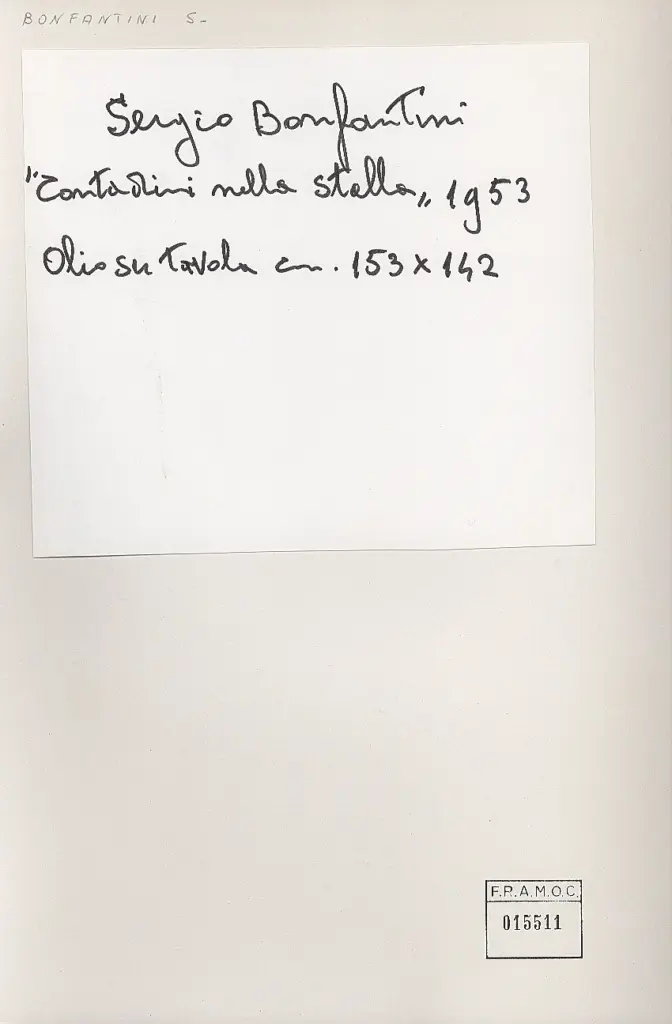 BONFANTINI S-
Sergio Bonfantini
"Contadini nella stalla„ 1953
Olio su tavola cm. 153 x 142
F.R.A.M.O.C.
015511